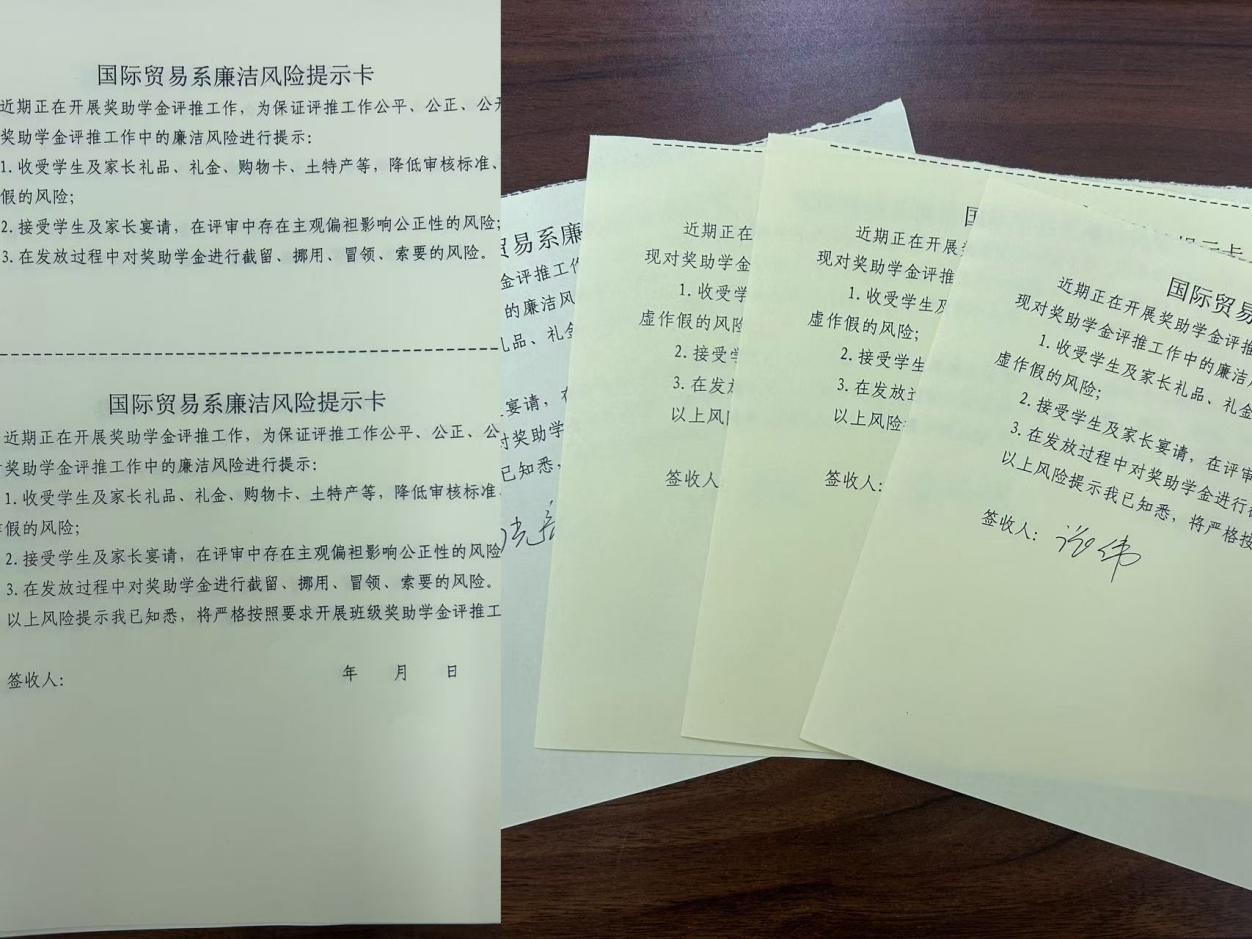 国际贸易系廉洁风险提示卡
近期正在开展奖助学金评推工作，为保证评推工作公平、公正、公开
奖助学金评推工作中的廉洁风险进行提示：
1.收受学生及家长礼品、礼金、购物卡、土特产等，降低审核标准、
假的风险；
2.接受学生及家长宴请，在评审中存在主观偏袒影响公正性的风险；
3.在发放过程中对奖助学金进行截留、挪用、冒领、索要的风险。
国际贸易系廉洁风险提示卡
近期正在开展奖助学金评推工作，为保证评推工作公平、公正、公
对奖助学金评推工作中的廉洁风险进行提示：
1.收受学生及家长礼品、礼金、购物卡、土特产等，降低审核标准、
作假的风险；
2.接受学生及家长宴请，在评审中存在主观偏袒影响公正性的风险
3.在发放过程中对奖助学金进行截留、挪用、冒领、索要的风险。
以上风险提示我已知悉，将严格按照要求开展班级奖助学金评推工
签收人： 年 月 日
贸易系廉
金评推工作
的廉洁风
礼品、礼金
宴请，在
对奖助学
已知悉，
近期正在
现对奖助学金
1.收受学
虚作假的风险
2.接受学
3.在发放
以上风
签收人
国
近期正在开展
现对奖助学金评推
1.收受学生及
虚作假的风险；
2.接受学生
3.在发放过
以上风险
签收人：
提示卡
国际贸易
近期正在开展奖助学金评推
现对奖助学金评推工作中的廉洁
1.收受学生及家长礼品、礼金
虚作假的风险；
2.接受学生及家长宴请，在评审
3.在发放过程中对奖助学金进行截
以上风险提示我已知悉，将严格按
签收人：